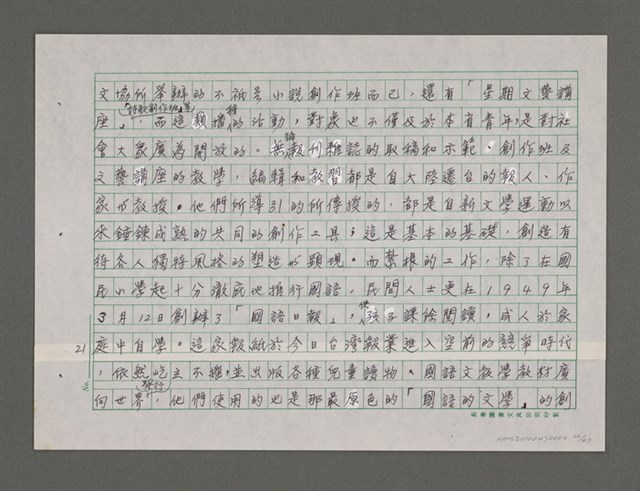 文協所舉辦的不祇是小說創作班而已,還有「星期文藝講
「詩歌創作班」等
座」,而這類種的活動,對象也不僅及於本省青年,是對社
會大眾廣為開放的。無論報刊雜誌的取稿和示範、創作班及
文藝講座的教學,編輯和教習都是自大陸遷台的報人、作
家或教授。他們所導引的所傳授的,都是自新文學運動以
來錘鍊成熟的共同的創作工具;這是基本的基礎,創造有
待各人獨特風格的塑造的顯現。而紮根的工作,除了在國
民小學起十分澈底地推行國語,民間人士更在1949年
3月12日創辦了「國語日報」,供孩子課餘閱讀,成人於家
21
庭中自學。這家報紙於今日台灣報業進入空前的競爭時代
,依然屹立不搖,並出版各種兒童讀物、國語文教學教材廣
(發行)
向世界,他們使用的也是那最原色的「國語的文學」的創